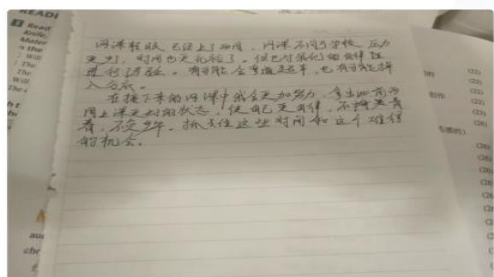 READI
Read
网课转眼已经上了两周,网课不同于学校,压力
更小,时间也更充裕了。但也对我们的自律性
进行了考验。有可能会弯道超车,也有可能掉
入谷底。
在接下来的网课中我会更加努力,拿出比前两
周上课更好的状态,使自己更自律,不
青
春,不负。抓住这些时间和这个难得
的机会。